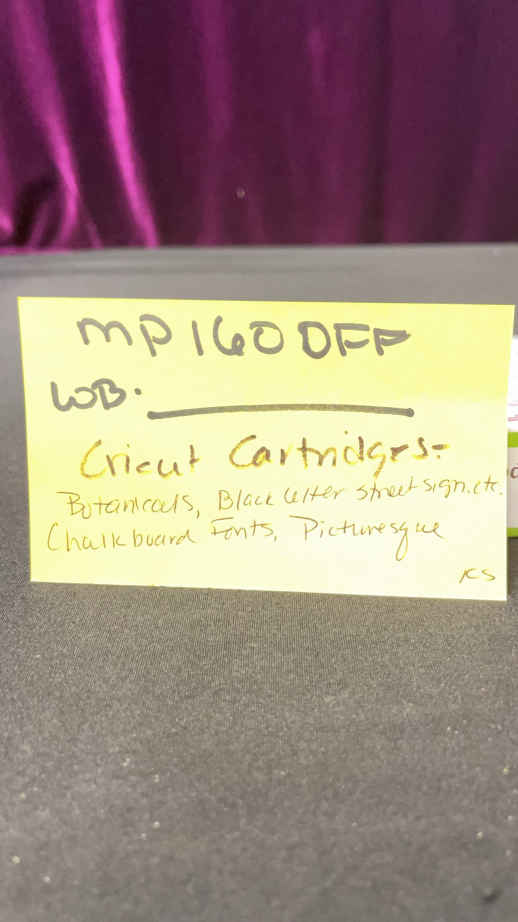 MP 160 OFF
WB.
Cricut Cartridges:
Botanicals, Black letter street sign, etc.
Chalkboard Fonts, Picturesque
KS